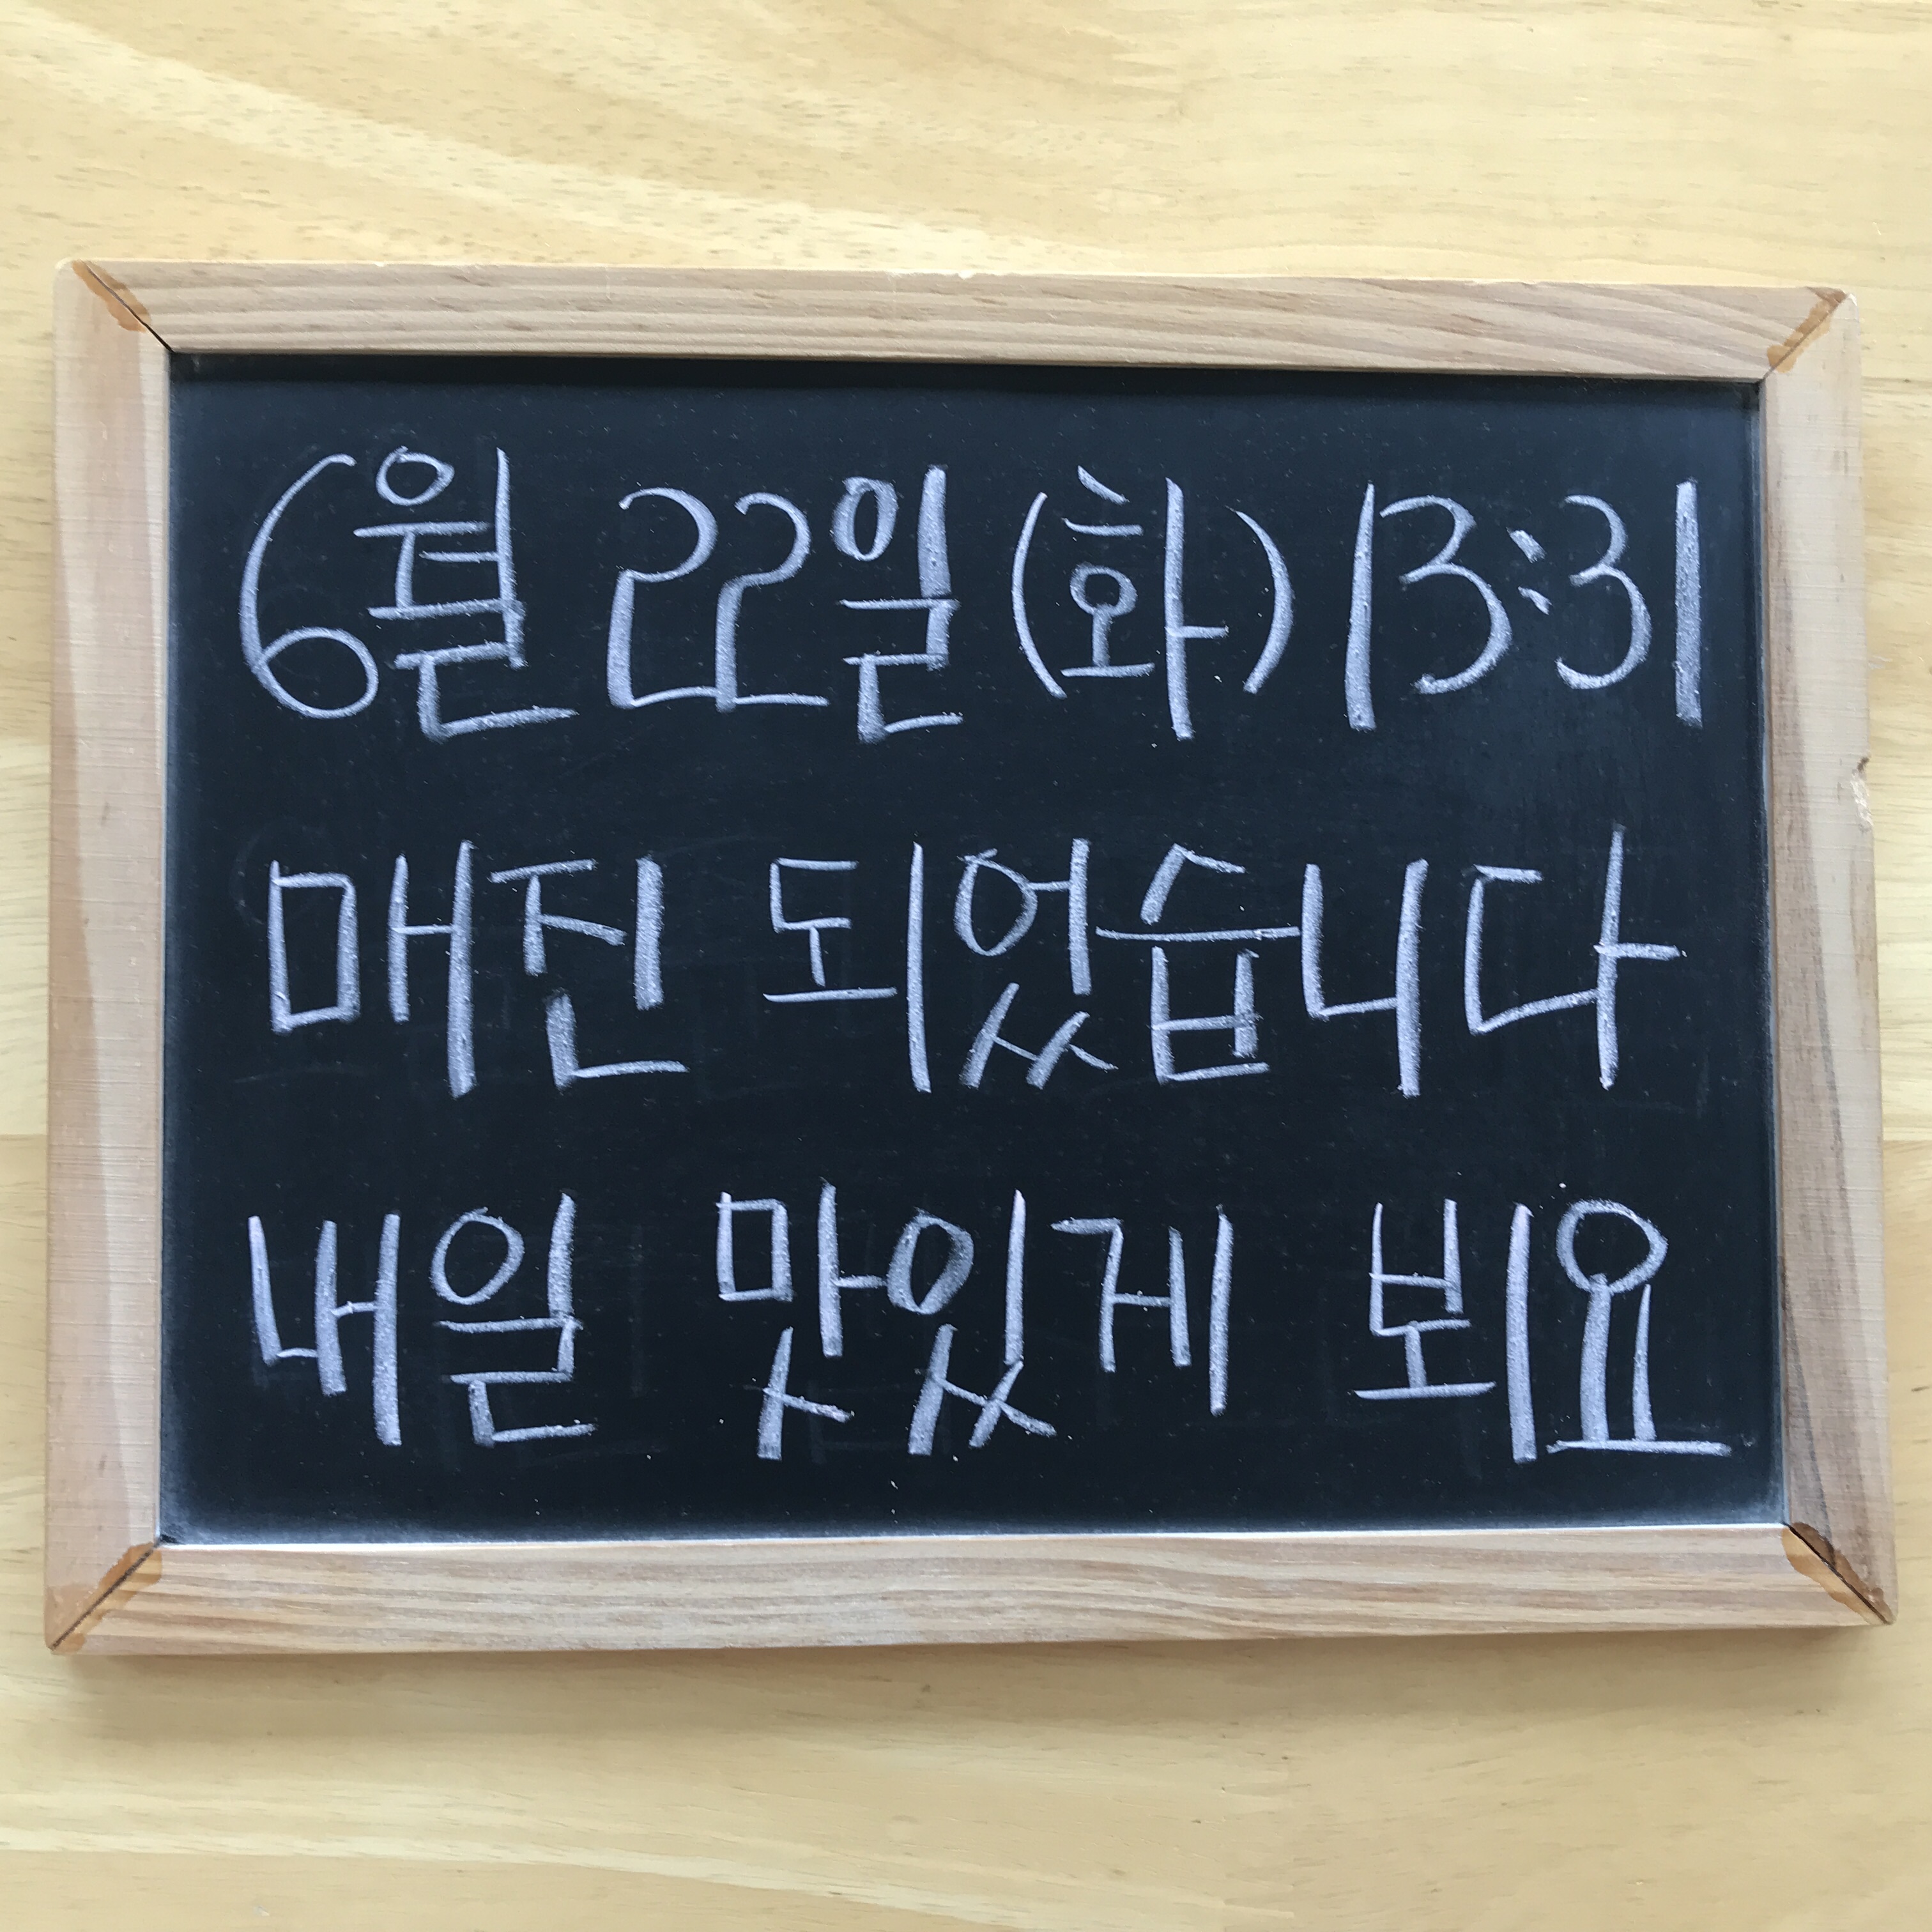 6월 22일 (화) 13:31
매진 되었습니다
내일 맛있게 뵈요